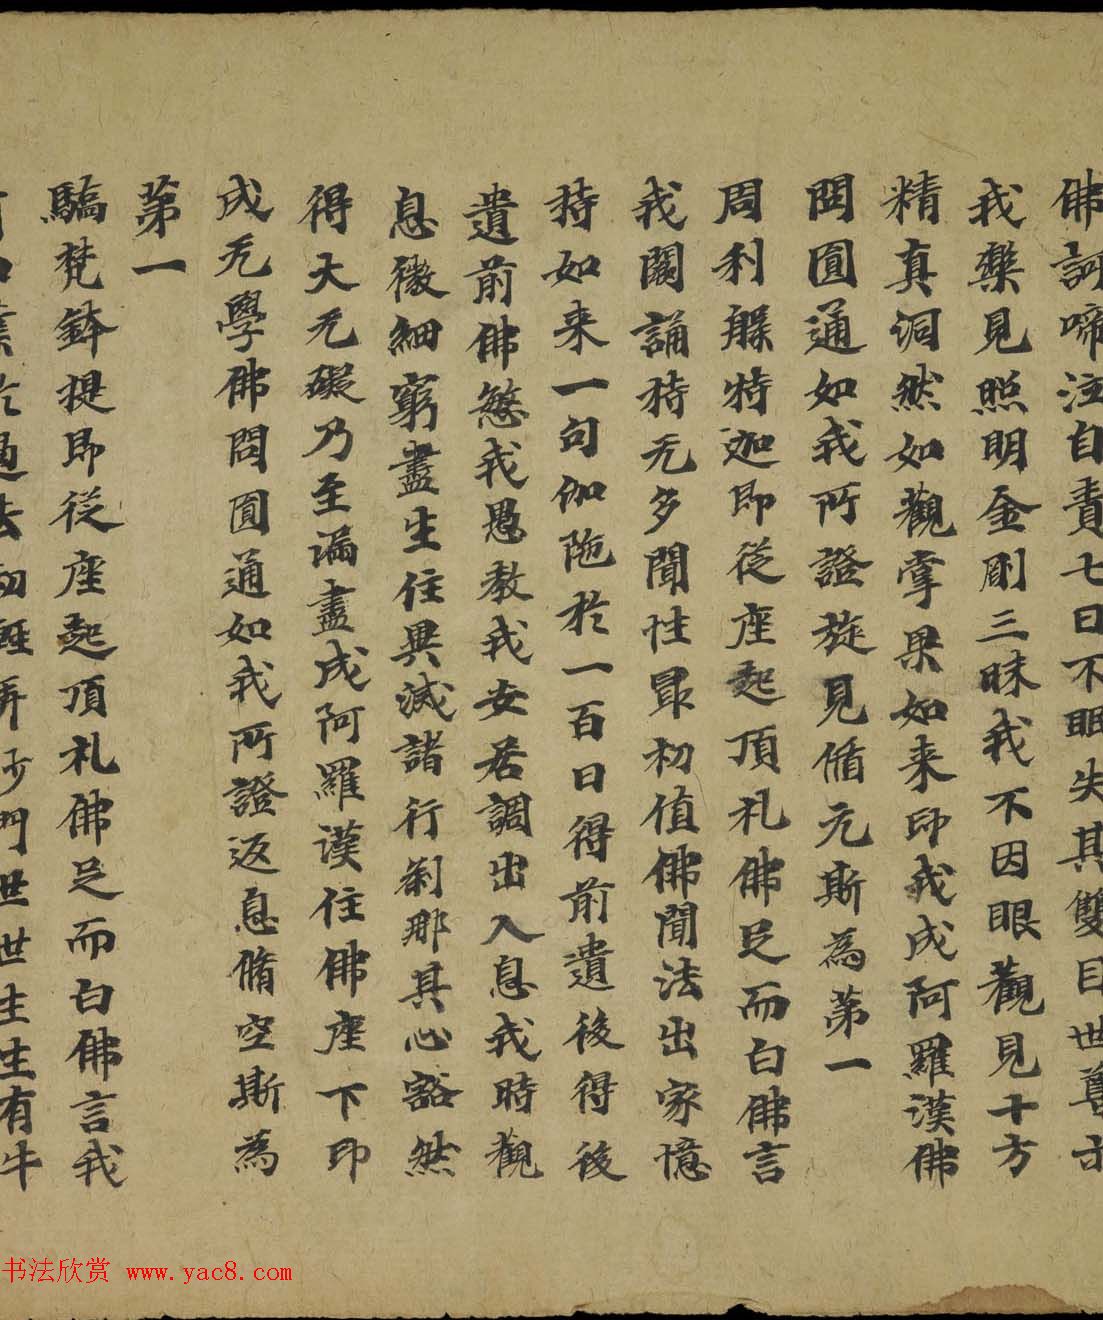 佛訶啼泣自責七日不眠失其雙目世尊示
我樂見照明金剛三昧我不因眼觀見十方
精真洞然如觀掌果如来印我成阿羅漢佛
問圓通如我所證旋見循元斯為苐一
周利槃特迦即從座起頂礼佛足而白佛言
我闕誦持无多聞性最初值佛聞法出家憶
持如来一句伽陁於一百日得前遺後得後
遺前佛愍我愚教我安居調出入息我時觀
息微細窮盡生住異滅諸行剎那其心豁然
得大无礙乃至漏盡成阿羅漢住佛座下印
成无學佛問圓通如我所證返息脩空斯為
苐一
驕梵鉢提即從座起頂礼佛足而白佛言我
有口業於過去劫輕弄沙門世世生生有牛
书法欣赏 www.yac8.com